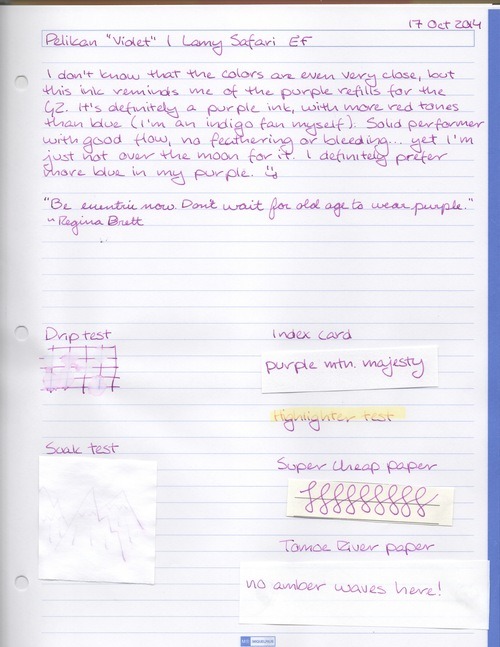 17 Oct 2014
Pelikan "Violet" | Lamy Safari EF
I don't know that the colors are even very close, but
this ink reminds me of the purple refills for the
G2. It's definitely a purple ink, with more red tones
than blue (i'm an indigo fan myself). Solid performer
with good flow, no feathering or bleeding... yet I'm
just not over the moon for it. I definitely prefer
more blue in my purple.
"Be eccentric now. Don't wait for old age to wear purple."
~ Regina Brett
Drip test
Index card
purple mtn. majesty
Highlighter test
Soak test
Super cheap paper
Tomoe River paper
no amber waves here!